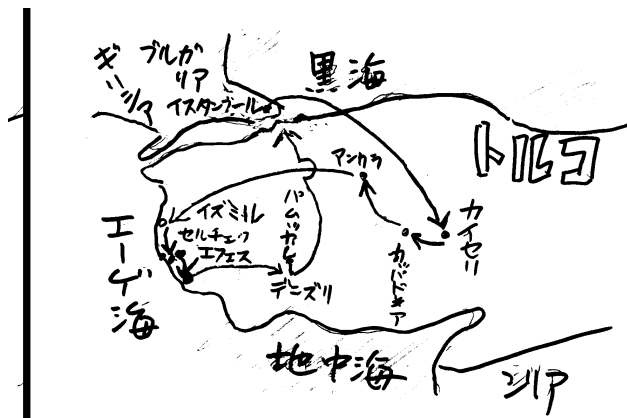 ギリシア
ブルガ
リア
黒海
イスタンブール
トルコ
アンカラ
カイセリ
イズミル
セルチェク
エフェス
パムッカレ
デニズリ
カッパドキア
エーゲ海
地中海
シリア